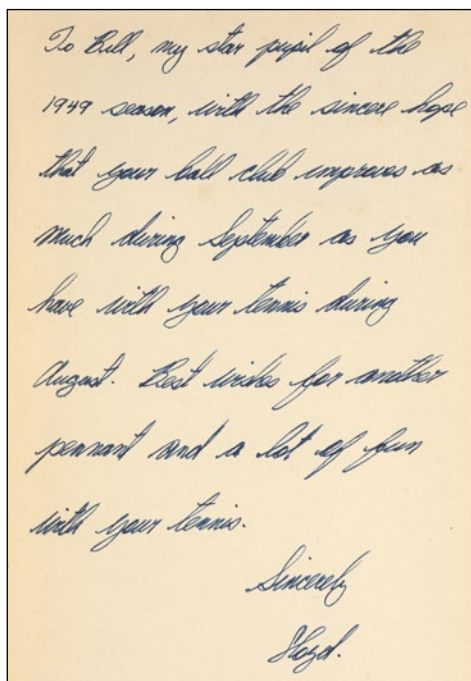 To Bill, my star pupil of the
1949 season, with the sincere hope
that your ball club improves as
much during September as you
have with your tennis during
August. Best wishes for another
pennant and a lot of fun
with your tennis.
Sincerely
Lloyd.